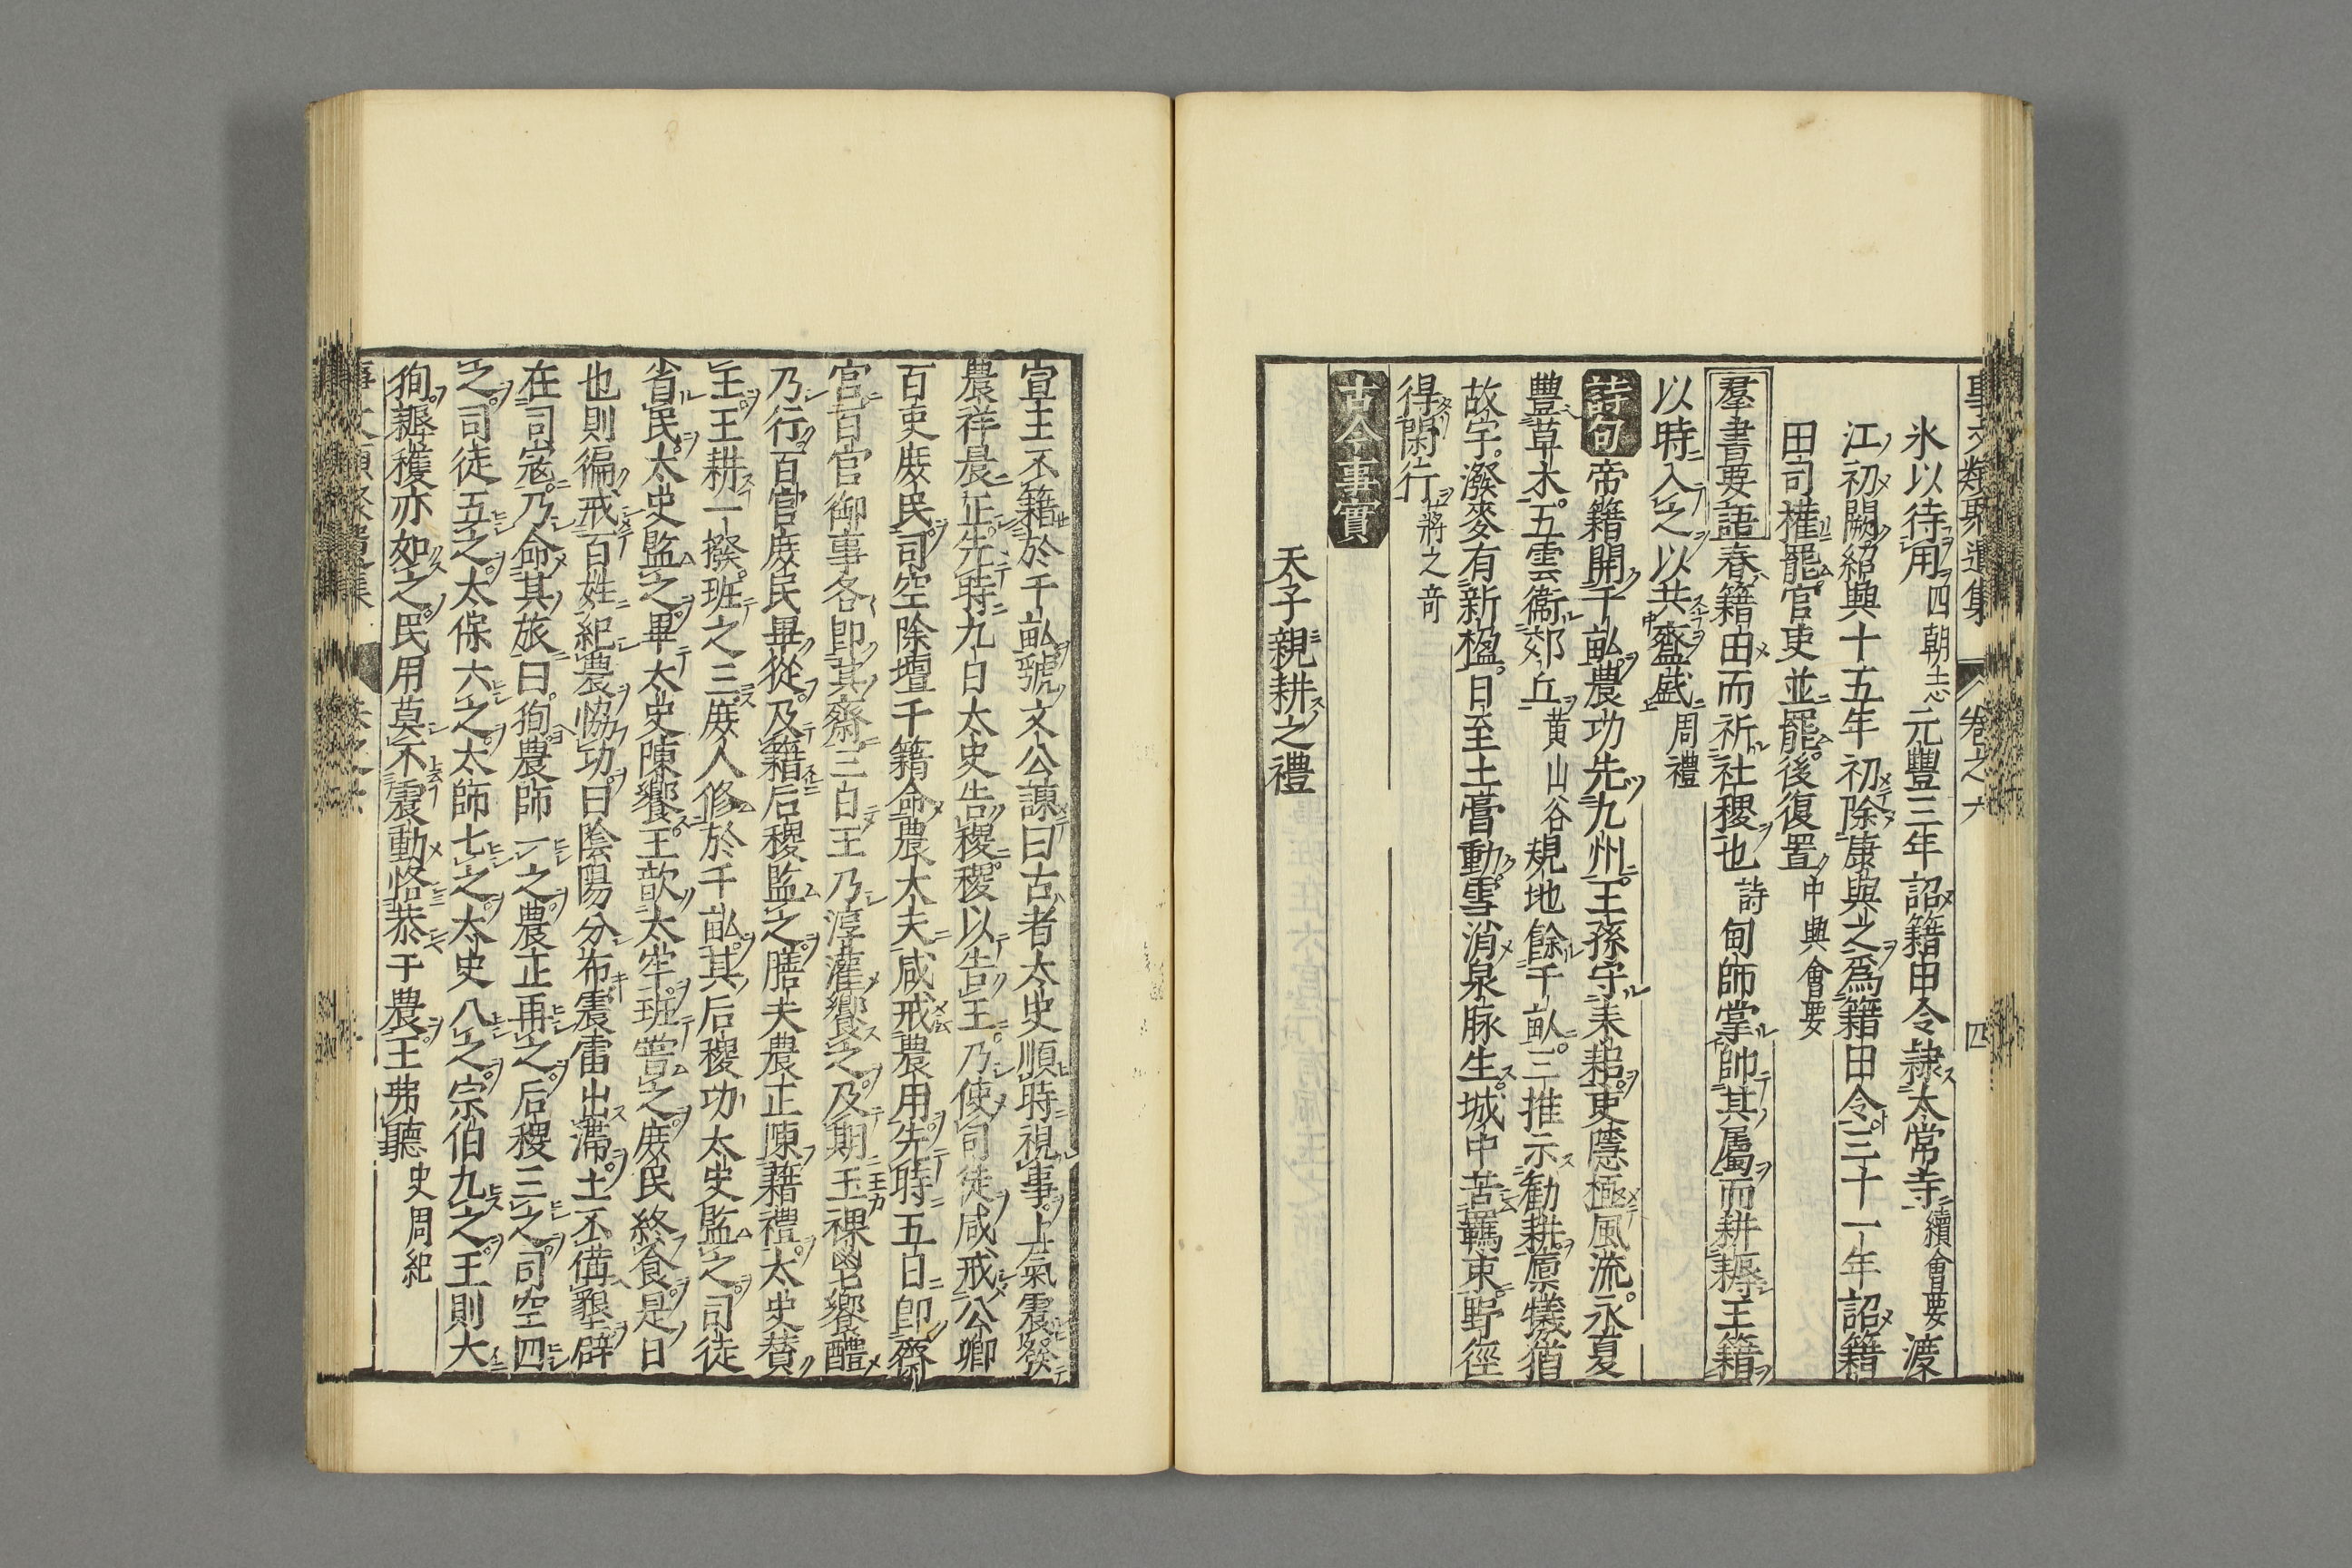 事文類聚遺集 卷之六 四
氷以待用四朝志元豐三年詔籍田令隷太常寺續會要渡
江初闕紹興十五年初除康與之爲籍田令三十一年詔籍
田司權罷官吏並罷後復置中興會要
羣書要語春籍田而祈社稷也詩甸師掌帥其屬而耕耨王籍
以時入之以共齍盛周禮
詩句帝籍開千畝農功先九州王孫守耒耜吏隱極風流永夏
豐草木五雲衞郊丘黄山谷規地餘千畝三推示勸耕廩犧猶
故宇瀿麥有新楹日至土膏動雪消泉脉生城中苦羈束野徑
得閑行蔣之奇
古今事實
天子親耕之禮
宣王不籍於千畝虢文公諫曰古者太史順時視事上氣震發
農祥晨正先時九日太史告稷稷以告王乃使司徒咸戒公卿
百吏庶民司空除壇千籍命農大夫咸戒農用先時五日卽齋
宮百官御事各卽其齋三日王乃淳灌饗之及期玉裸鬯饗醴
乃行百官庶民畢從及籍后稷監之膳夫農正陳籍禮太史賛
王王耕一撥班之三庶人修於千畝其后稷功太史監之司徒
省民太史監之畢太史陳饗王歆太牢班嘗之庶民終食是日
也則徧戒百姓紀農恊功曰陰陽分布震雷出滯土不備墾辟
在司寇乃命其旅曰狥農師一之農正再之后稷三之司空四
之司徒五之太保六之太師七之太史八之宗伯九之王則大
狥耨穫亦如之民用莫不震動恪恭于農王弗聽史周紀